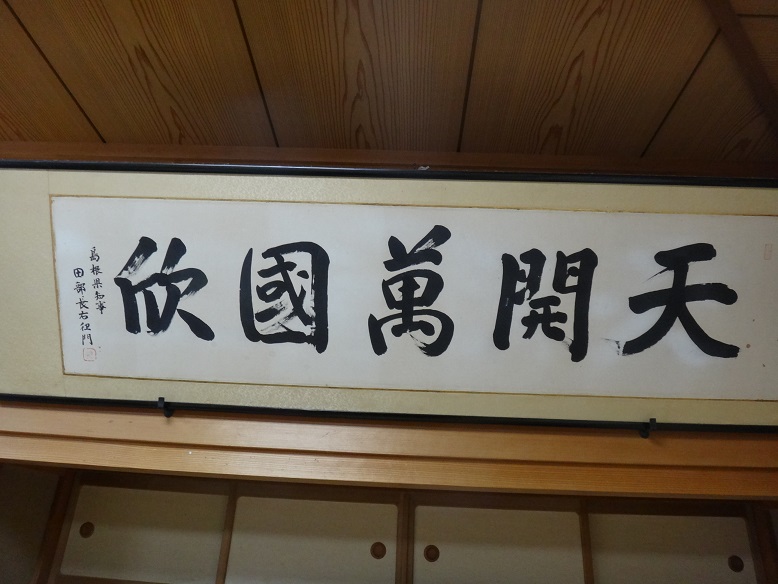 天開萬國欣
島根県知事
田部長右衛門